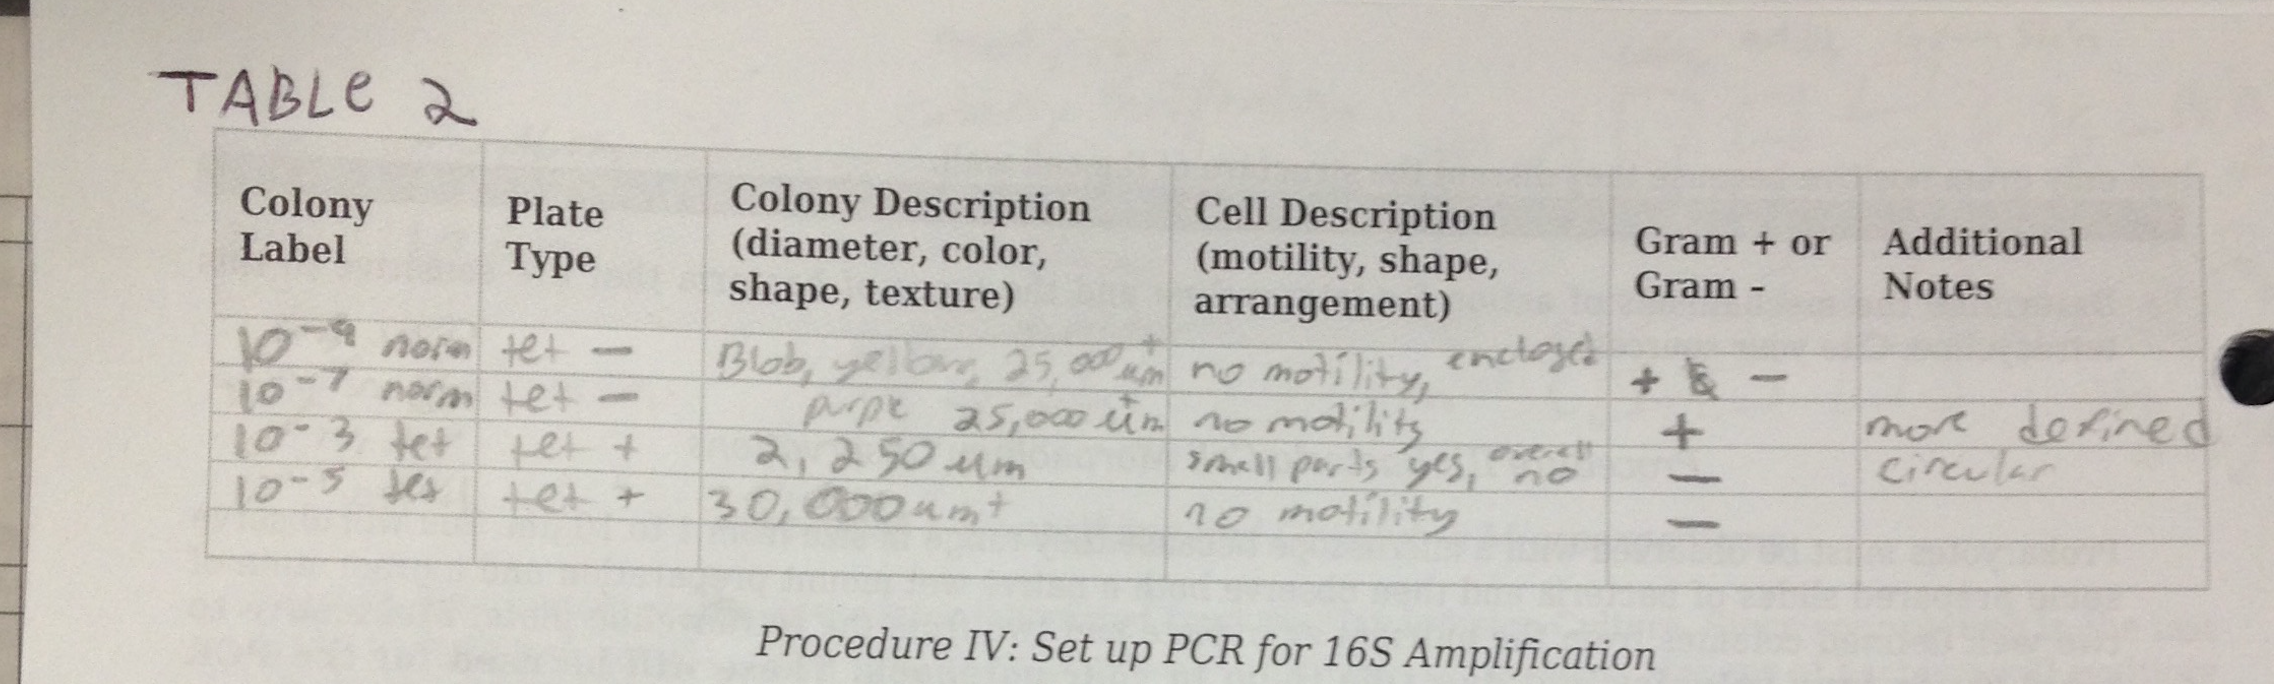 TABLe 2
Colony Label | Plate Type | Colony Description (diameter, color, shape, texture) | Cell Description (motility, shape, arrangement) | Gram + or Gram - | Additional Notes
norm | tet − | Blob, yellow, 25,000+ um | no motility, enclosed | + & −
10⁻⁷ norm | tet − | purple 25,000+ um | no motility | + | more defined
10⁻³ tet | tet + | 2,250 um | small parts yes, overall no | − | circular
10⁻⁵ tet | tet + | 30,000um+ | no motility | −
Procedure IV: Set up PCR for 16S Amplification